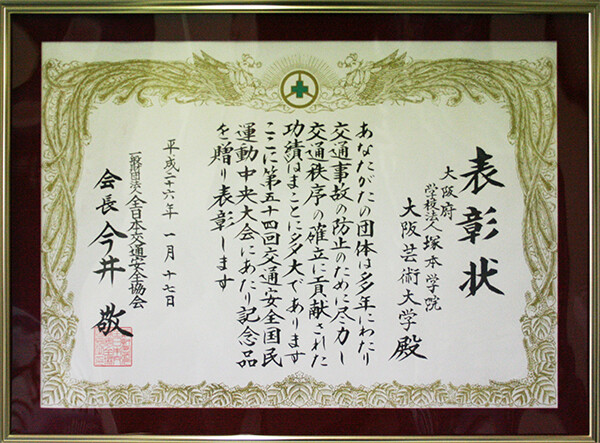 表彰状
大阪府
学校法人塚本学院
大阪芸術大学殿
あなたがたの団体は多年にわたり
交通事故の防止のために尽力し
交通秩序の確立に貢献された
功績はまことに多大であります
ここに第五十四回交通安全国民
運動中央大会にあたり記念品
を贈り表彰します
平成二十六年一月十七日
一般財団法人全日本交通安全協会
会長今井敬